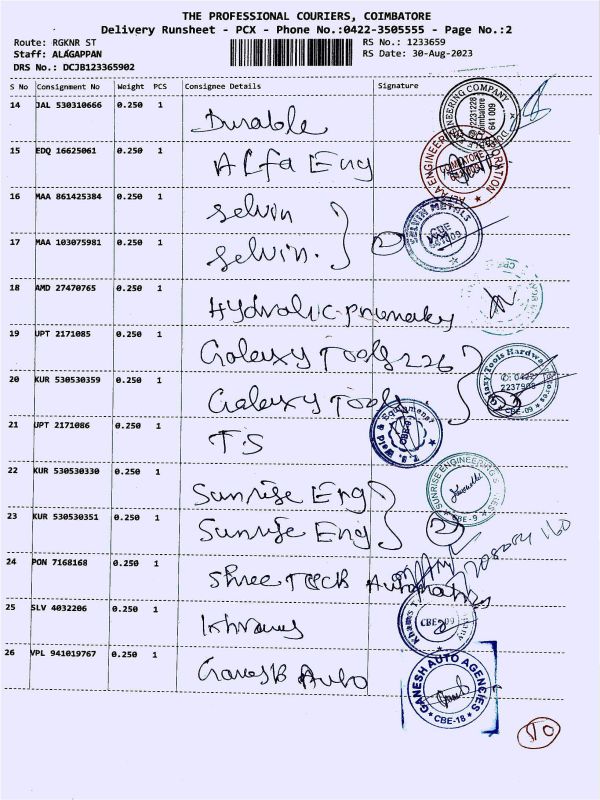 THE PROFESSIONAL COURIERS, COIMBATORE
Delivery Runsheet - PCX - Phone No.:0422-3505555 - Page No.:2
Route: RGKNR ST
RS No.: 1233659
Staff: ALAGAPPAN
RS Date: 30-Aug-2023
DRS No.: DCJB123365902
S No Consignment No Weight PCS Consignee Details Signature
14 JAL 530310666 0.250 1 Durable
ENGINEERING COMPANY
2231228
Coimbatore
641 009
15 EDQ 16625061 0.250 1 Alfa Eng
ALFAA ENGINEERING CORPORATION
COIMBATORE
16 MAA 861425384 0.250 1 Selvin
SELVIN METALS
CBE
17 MAA 103075981 0.250 1 Selvin. 2
18 AMD 27470765 0.250 1 Hydralic-
19 UPT 2171085 0.250 1 Galaxy Tools 226
20 KUR 530530359 0.250 1 Galaxy Tools
Galaxy Tools Hardware Stores
0422
2237908
CBE-09
21 UPT 2171086 0.250 1 T.S
T. S. Weld & Equipment
22 KUR 530530330 0.250 1 Sunrise Eng
SUNRISE ENGINEERING
CBE-9
23 KUR 530530351 0.250 1 Sunrise Eng 2
24 PON 7168168 0.250 1 Shree Tech Automation
25 SLV 4032206 0.250 1
CBE-09
26 VPL 941019767 0.250 1 Ganesh Auto
GANESH AUTO AGENCIES
CBE-18